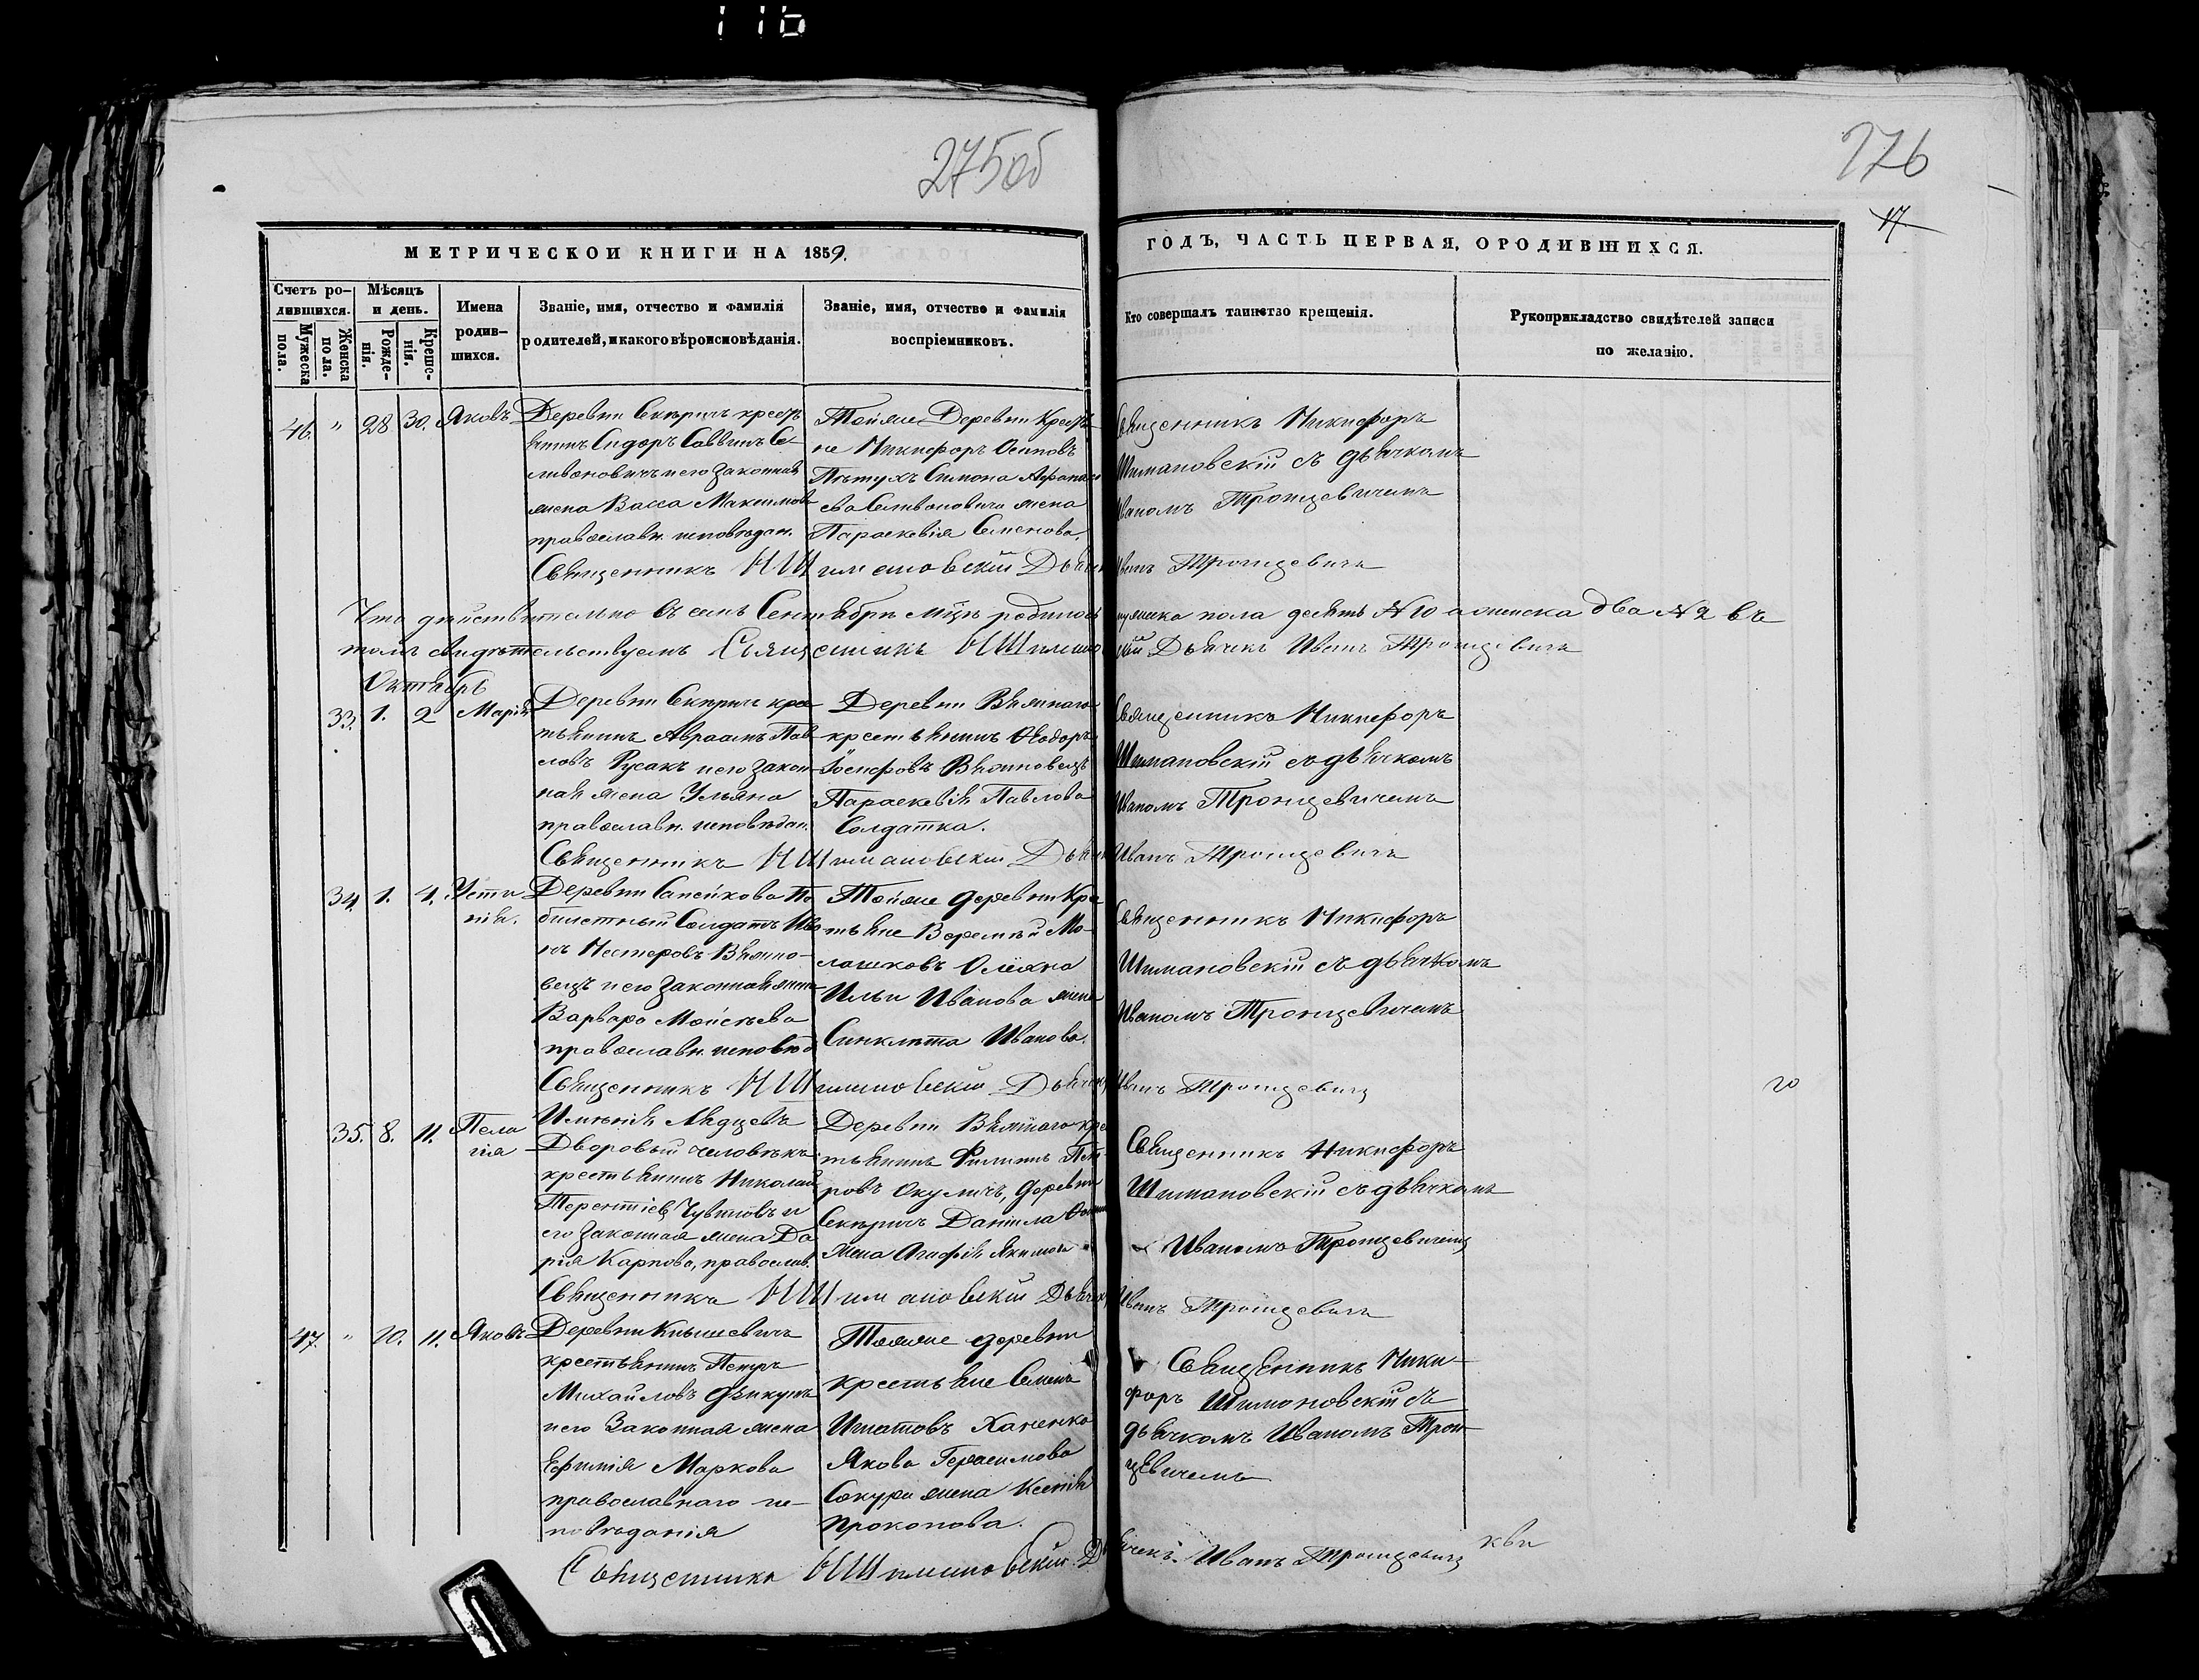 116
275об
276
17.
МЕТРИЧЕСКОЙ КНИГИ НА 1859.
ГОДЪ, ЧАСТЬ ПЕРВАЯ, О РОДИВШИХСЯ.
Счетъ ро-
дившихся.
Мужеска
пола.
Женска
пола.
Мѣсяцъ
и день.
Рожде-
нія.
Креще-
нія.
Имена
родив-
шихся.
Званіе, имя, отчество и фамилія
родителей, и какого вѣроисповѣданія.
Званіе, имя, отчество и фамилія
воспріемниковъ.
Кто совершалъ таинство крещенія.
Рукоприкладство свидѣтелей записи
по желанію.
46. " 28 30. Яковъ
Деревни Секѣричь кресть
янинъ Сидоръ Саввинъ Се-
ливоновичъ и его законная
жена Васса Максимова
православн. исповѣдан.
Тойже Деревни Кресть
не Никифоръ Осиповъ
Пѣтухъ Симона Афанась
ева Селивоновича жена
Параскевія Семенова.
Священникъ Никифоръ
Шимановскій съ дьячкомъ
Иваномъ Тронцевичемъ
Священникъ Н Шимановскій Дьячек Иванъ Тронцевичъ
Что дѣйствительно въ семъ Сентябрѣ мцѣ родилось мужеска пола десять № 10 а женска два № 2 въ
томъ свидѣтельствуемъ Священникъ Н Шимановскій Дьячекъ Иванъ Тронцевичъ
Октябрь
33. 1. 2 Марія
Деревни Секѣричь крес
тьянинъ Авраамъ Пав
ловъ Русакъ и его закон
ная жена Ульяна
православн. исповѣдан.
Деревни Вяжнаго
крестьянинъ Ѳеодоръ
Іосифовъ Вяжновецъ
Параскевія Павлова
Солдатка.
Священникъ Никифоръ
Шимановскій съ дьячкомъ
Иваномъ Тронцевичемъ
Священникъ Н Шимановскій Дьячек Иванъ Тронцевичъ
34. 1. 4. Усти
нія.
Деревни Сапейкова По
билетный Солдатъ Ива
нъ Нестеровъ Вяжно-
вецъ и его законная жена
Варвара Мойсѣева
православн. исповѣд
Тойже деревни Кре
тьяне Варемѣй Мо-
Ильи Иванова жена
Синклита Иванова.
Священникъ Никифоръ
Шимановскій съ дьячкомъ
Иваномъ Тронцевичемъ
Священникъ Н Шимановскій Дьячекъ Иванъ Тронцевичъ
35. 8. 11. Пела
гія
Имѣнія
Дворовый человѣкъ
крестьянинъ Николай
Терентіев
его законная жена Да
рія Карпова, православ.
Деревни Вяжнаго кре
тьянинъ Филипъ Пет
ровъ Окуличъ, деревни
Секѣричь Данила
жена Агафія Якимова
Священникъ Никифоръ
Шимановскій съ дьячкомъ
Иваномъ Тронцевичемъ
Священникъ Н Шимановскій Дьячекъ Иванъ Тронцевичъ
47. " 10. 11. Яковъ
Деревни Кнышевичъ
крестьянинъ Петръ
Михайловъ
и его Законная жена
Ефимія Маркова
православнаго ис-
повѣданія
Тойже деревни
крестьяне Семенъ
Игнатовъ Ханенко
Якова Герасимова
Сакура жена Ксенія
Прокопова.
Священникъ Ники-
форъ Шимановскій съ
дьячкомъ Иваномъ Трон
цевичемъ
Священникъ Н Шимановскій. Дьячекъ. Иванъ Тронцевичъ